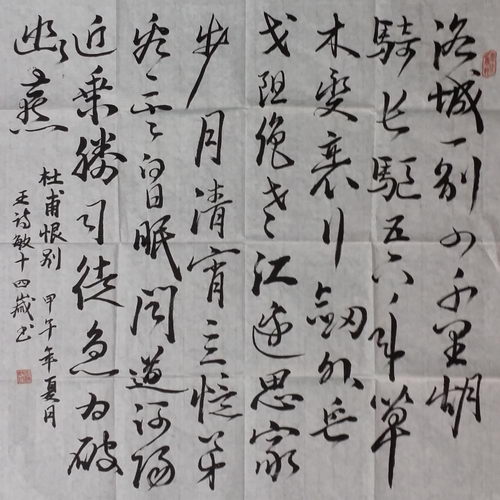 洛城一別四千里胡
騎長驅五六年草
木變衰行劍外兵
戈阻絕老江邊思家
步月清宵立憶弟
看雲白日眠聞道河陽
近乘勝司徒急為破
幽燕
杜甫恨別 甲午年夏月
王詩敏十四歲書